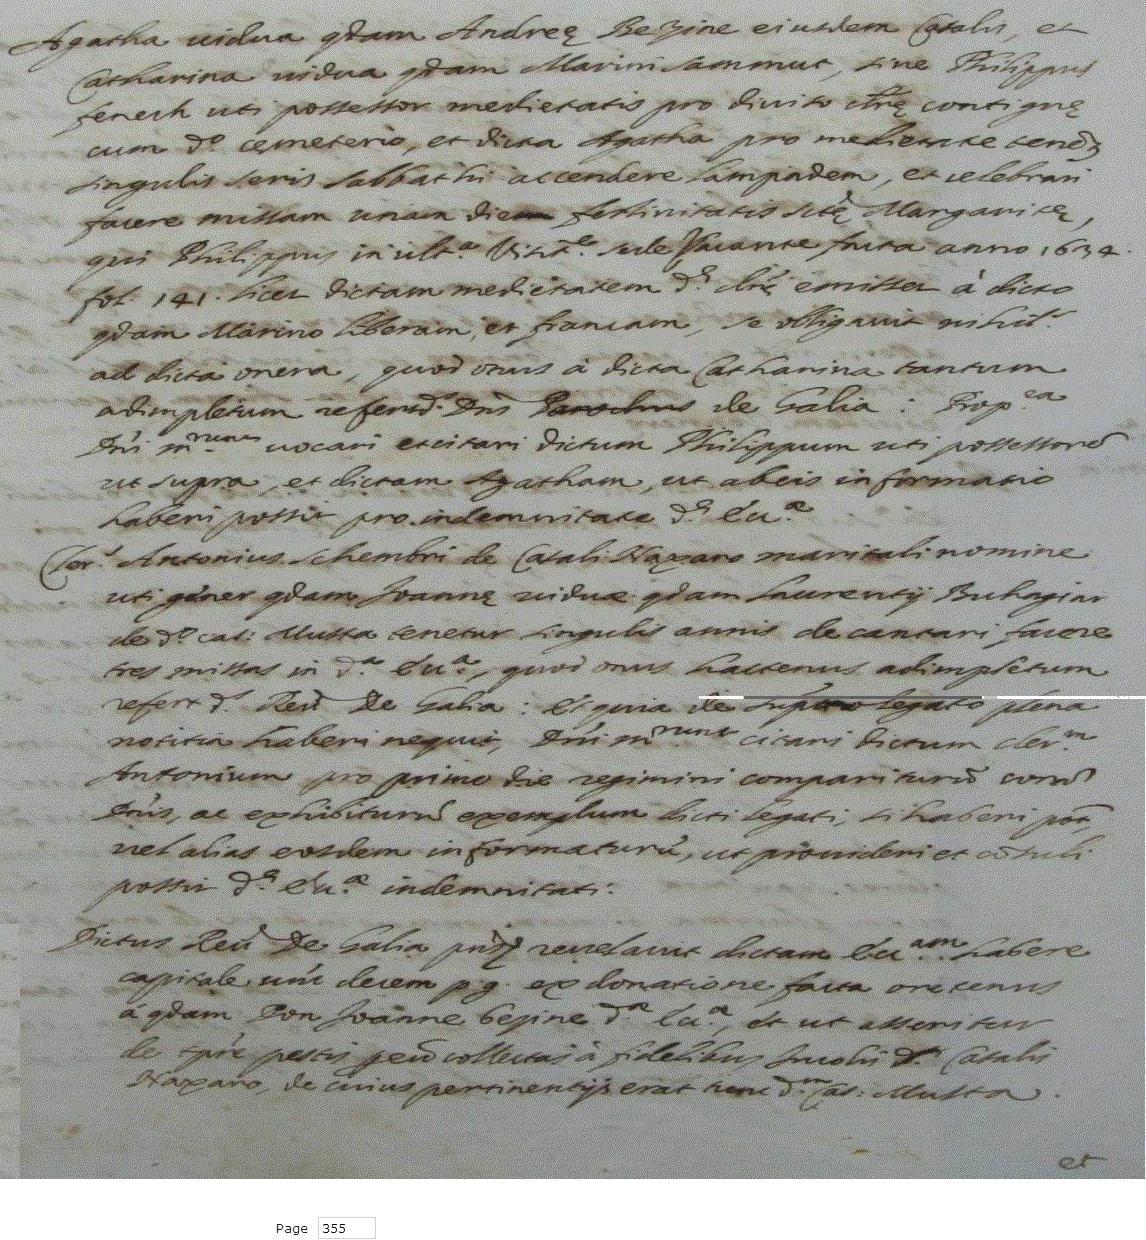 Agatha vidua qdam Andreę Bezzine eiusdem Casalis, et
Catharina vidua qdam Marini Sammut, sive Philippus
fenech uti possessor medietatis pro diviso clęę contiguę
cum dº cęmeterio, et dicta Agatha pro medietate tenēz
singulis seris sabbathi accendere lampadem, et celebrari
facere missam unam diem festivitatis Stę Margaritę,
qui Philippus in ult.ª Visit.e sede Vacante facta anno 1634.
fol. 141. licet dictam medietatem d.ę emisset à dicto
qdam Marino liberam, et francam, se obligavit nihil.
ad dicta onera, quod onus à dicta Catharina tantum
adimpletum refertd. Dns Parochus de Galia : Prop.ea
Dni m.runt vocari et citari dictum Philippum uti possessorē
ut supra, et dictam Agatham, ut ab eis informatio
haberi possit pro indemnitate d.ę Ecc.ę
Cler. Antonius Schembri de Casali Naxaro maritali nomine
uti gener qdam Joannę viduę qdam Laurentij Buhagiar
de dº cas: Musta tenetur singulis annis decantari facere
tres missas in d.ª Ecc.ª, quod onus hactenus adimpletum
refert d.s Reu De Galia : et quia de legato plena
notitia haberi nequit, Dni m.runt citari dictum cler.m
Antonium pro primo die regimini compariturū corā
Dnis, ac exhibiturū exemplum dicti legati, si haberi pot,
vel alias eosdem informaturū, ut provideri et cōsuli
possit d.ę Ecc.ę indemnitati.
Dictus Reu De Galia revelavit dictam Ecc.am habere
capitale unc decem p.g. ex donatione facta oretenus
à qdam Don Joanne bezzine d.ę Ecc.ę, et ut asseritur
de tpre pestis collectas à fidelibus Incolis d.i Casalis
Naxaro, de cuius pertinentijs erat tunc d.m Cas: Musta.
et
Page 355